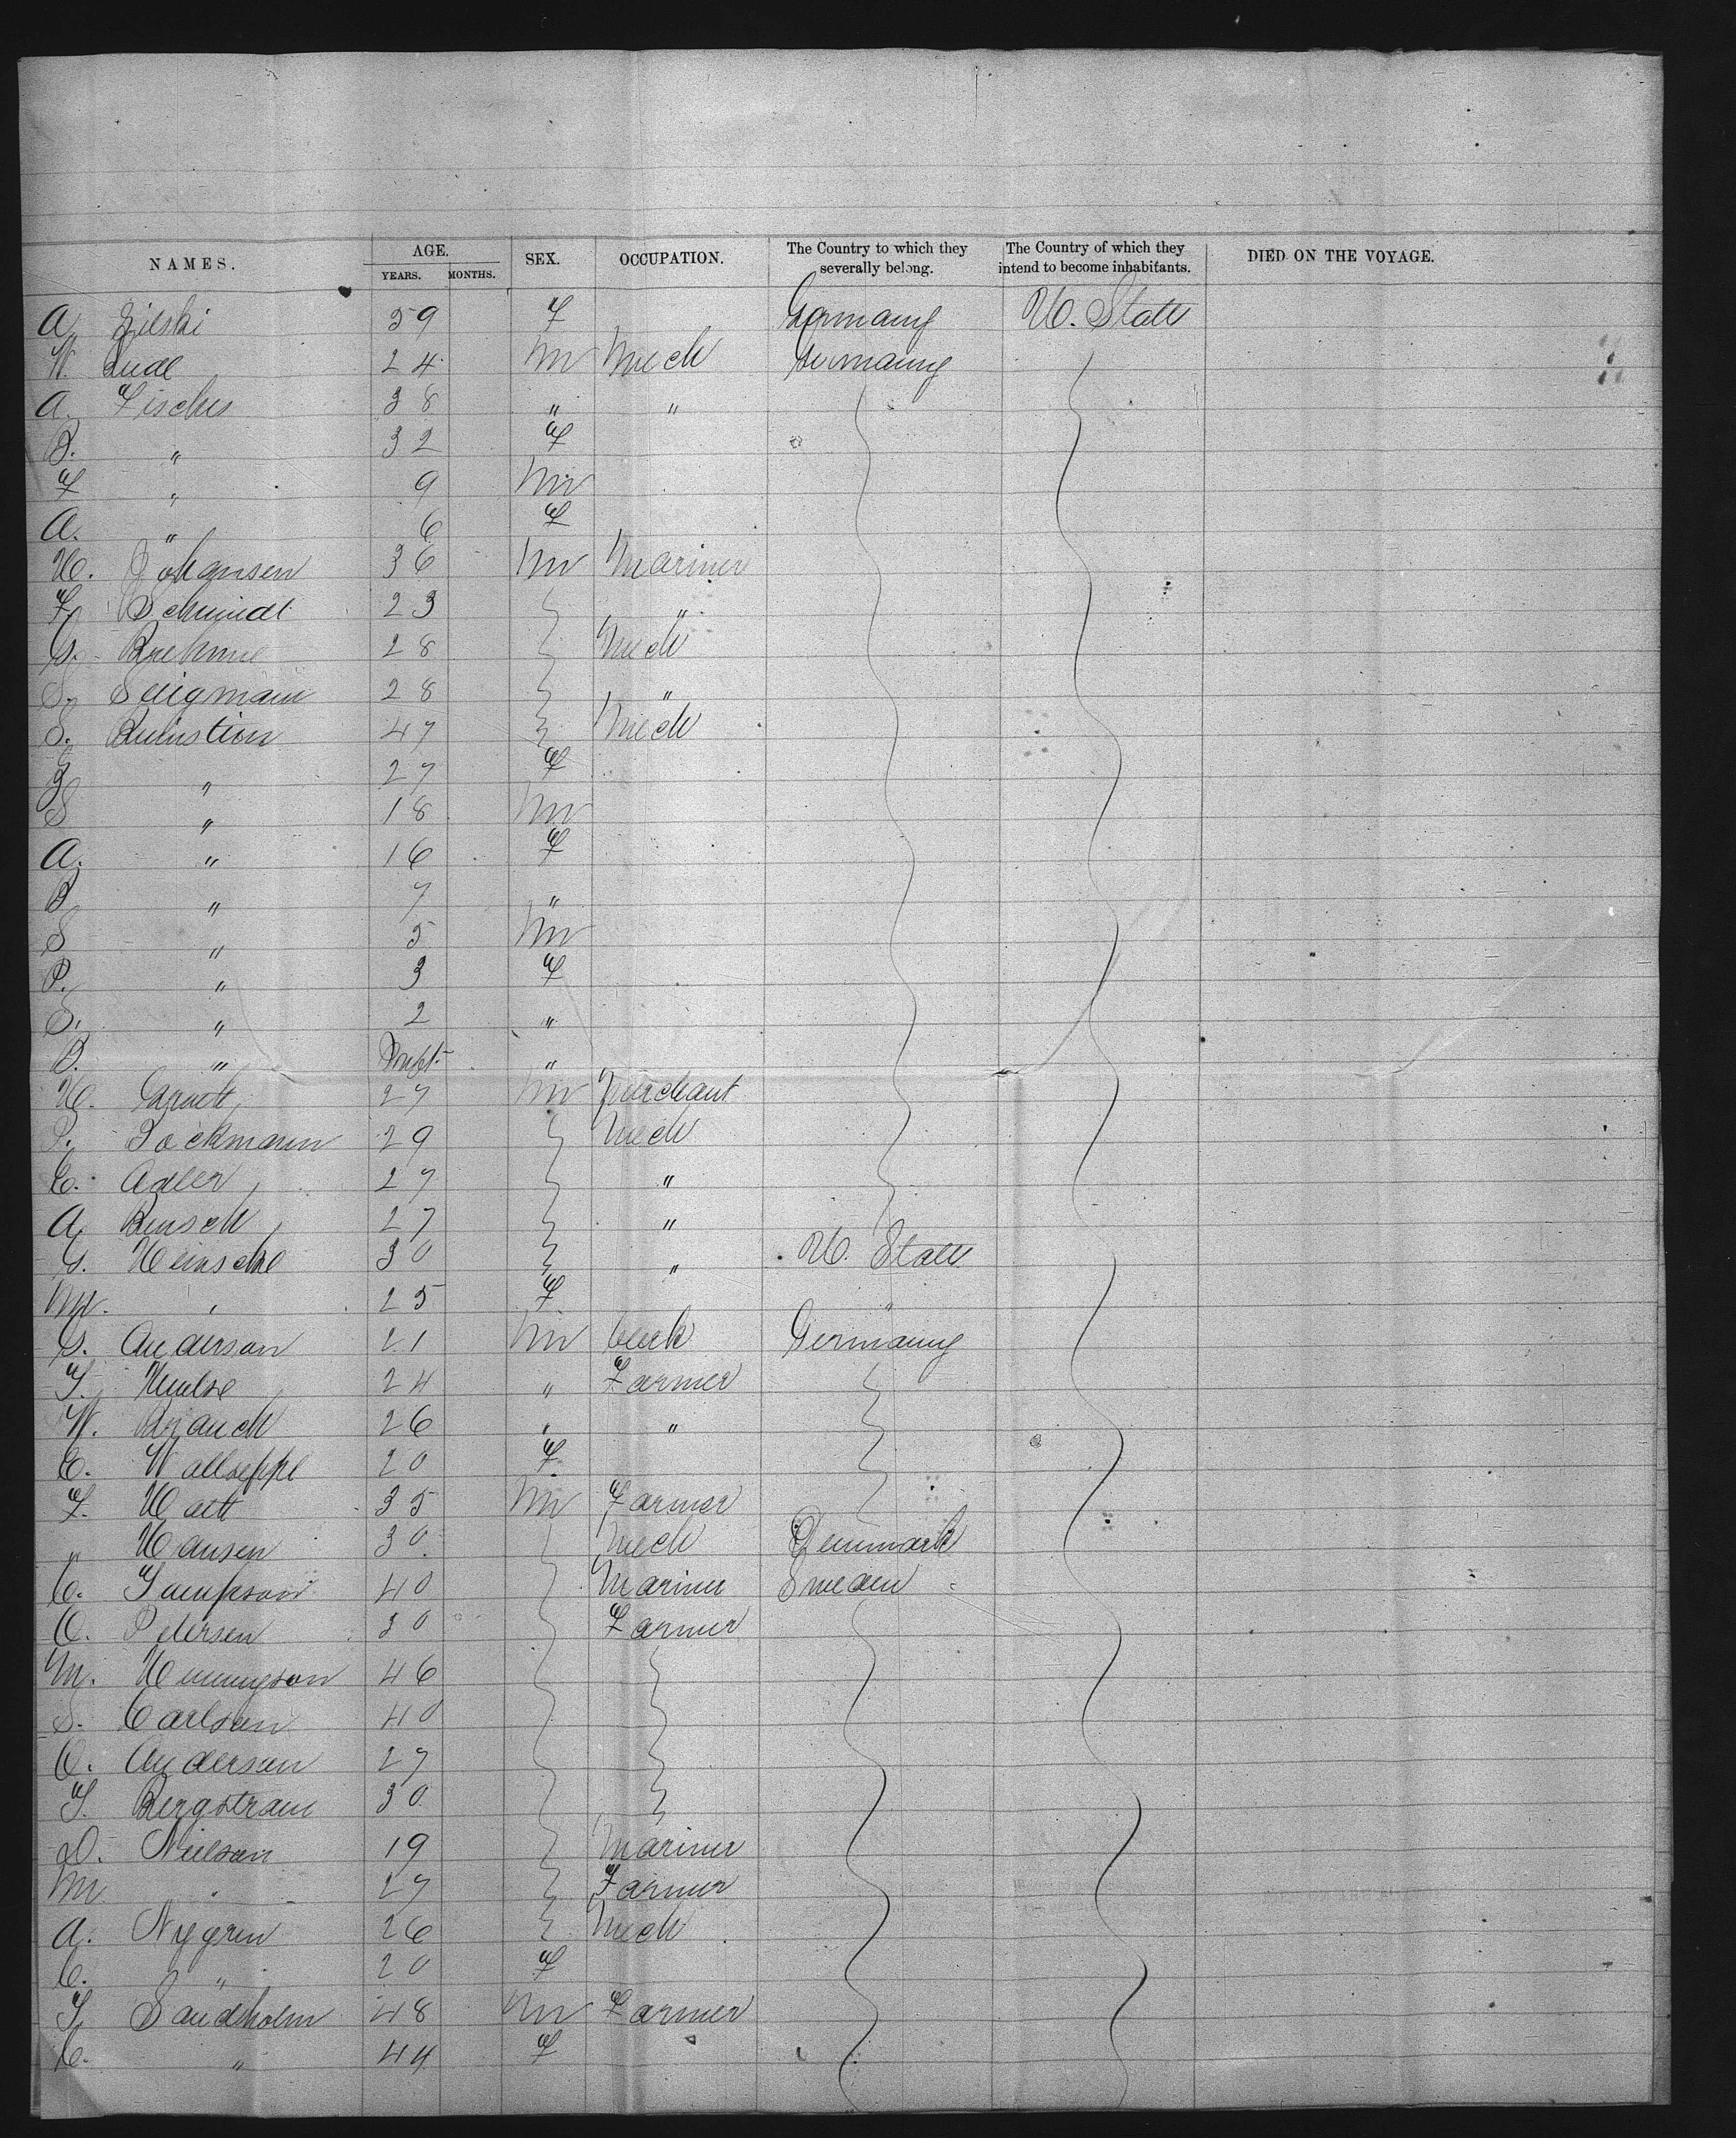 NAMES. AGE. YEARS. MONTHS. SEX. OCCUPATION. The Country to which they severally belong. The Country of which they intend to become inhabitants. DIED ON THE VOYAGE.
A. Zielski 59 F Germany U. States
W. 24 M Mech Germany
A. Fischer 38 " "
B. " 32 F
F " 9 M
A. " 6 F
H. Johansen 36 M Mariner
F. Schmidt 23 "
G. Boehme 28 Mech
S. Seligmann 28 "
S. 47 Mech
" 27 F
S " 18 M
A. " 16 F
B " 7 "
S " 5 M
P. " 3 F
S. " 2 "
B. " Inft. "
H. 27 M Merchant
29 Mech
E. Adler 27 "
A. Bensch 27 "
G. Heinsche 30 " U. States
M. " 25 F "
G. Anderson 21 M Clerk Germany
T. 24 " Farmer
W. Branch 26 " "
E. 20 F
F. 35 M Farmer
" Hansen 30 Mech Denmark
C. 40 Mariner Sweden
O. Petersen 30 Farmer
M. Henningson 46
S. Carlson 40
O. Anderson 27
T. Bergstrom 30
D. Nielson 19 Mariner
M " 27 Farmer
A. Nygren 26 Mech
C. " 20 F
T. Sandholm 48 M Farmer
C. " 44 F